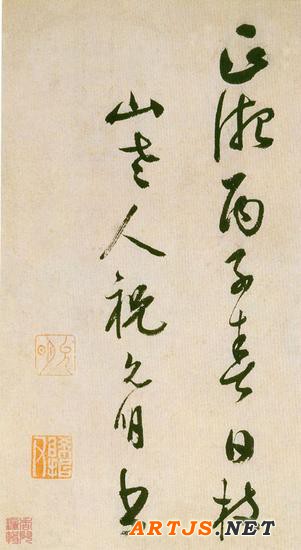 正德丙子春日枝
山老人祝允明書
允明
ARTJS.NET